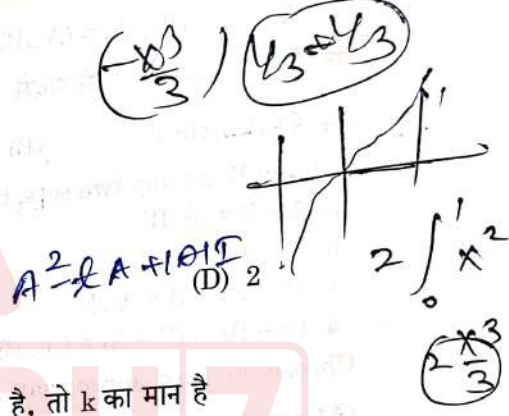 (-x³/3) 1/3 + 1/3
1
A² - A + |A|I
(D) 2
2∫₀¹ x²
2 x³/3
है, तो k का मान है